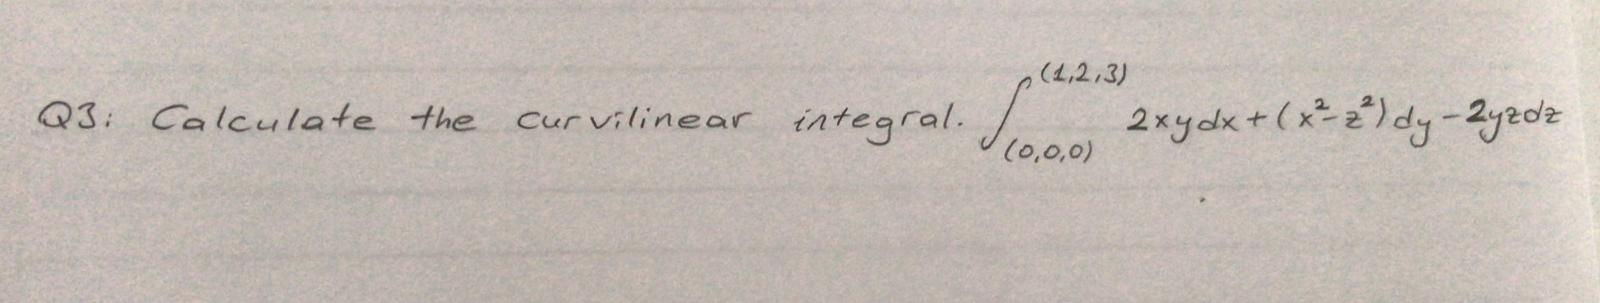 Q3: Calculate the curvilinear integral. ∫_(0,0,0)^(1,2,3) 2xydx+(x²-z²)dy-2yzdz